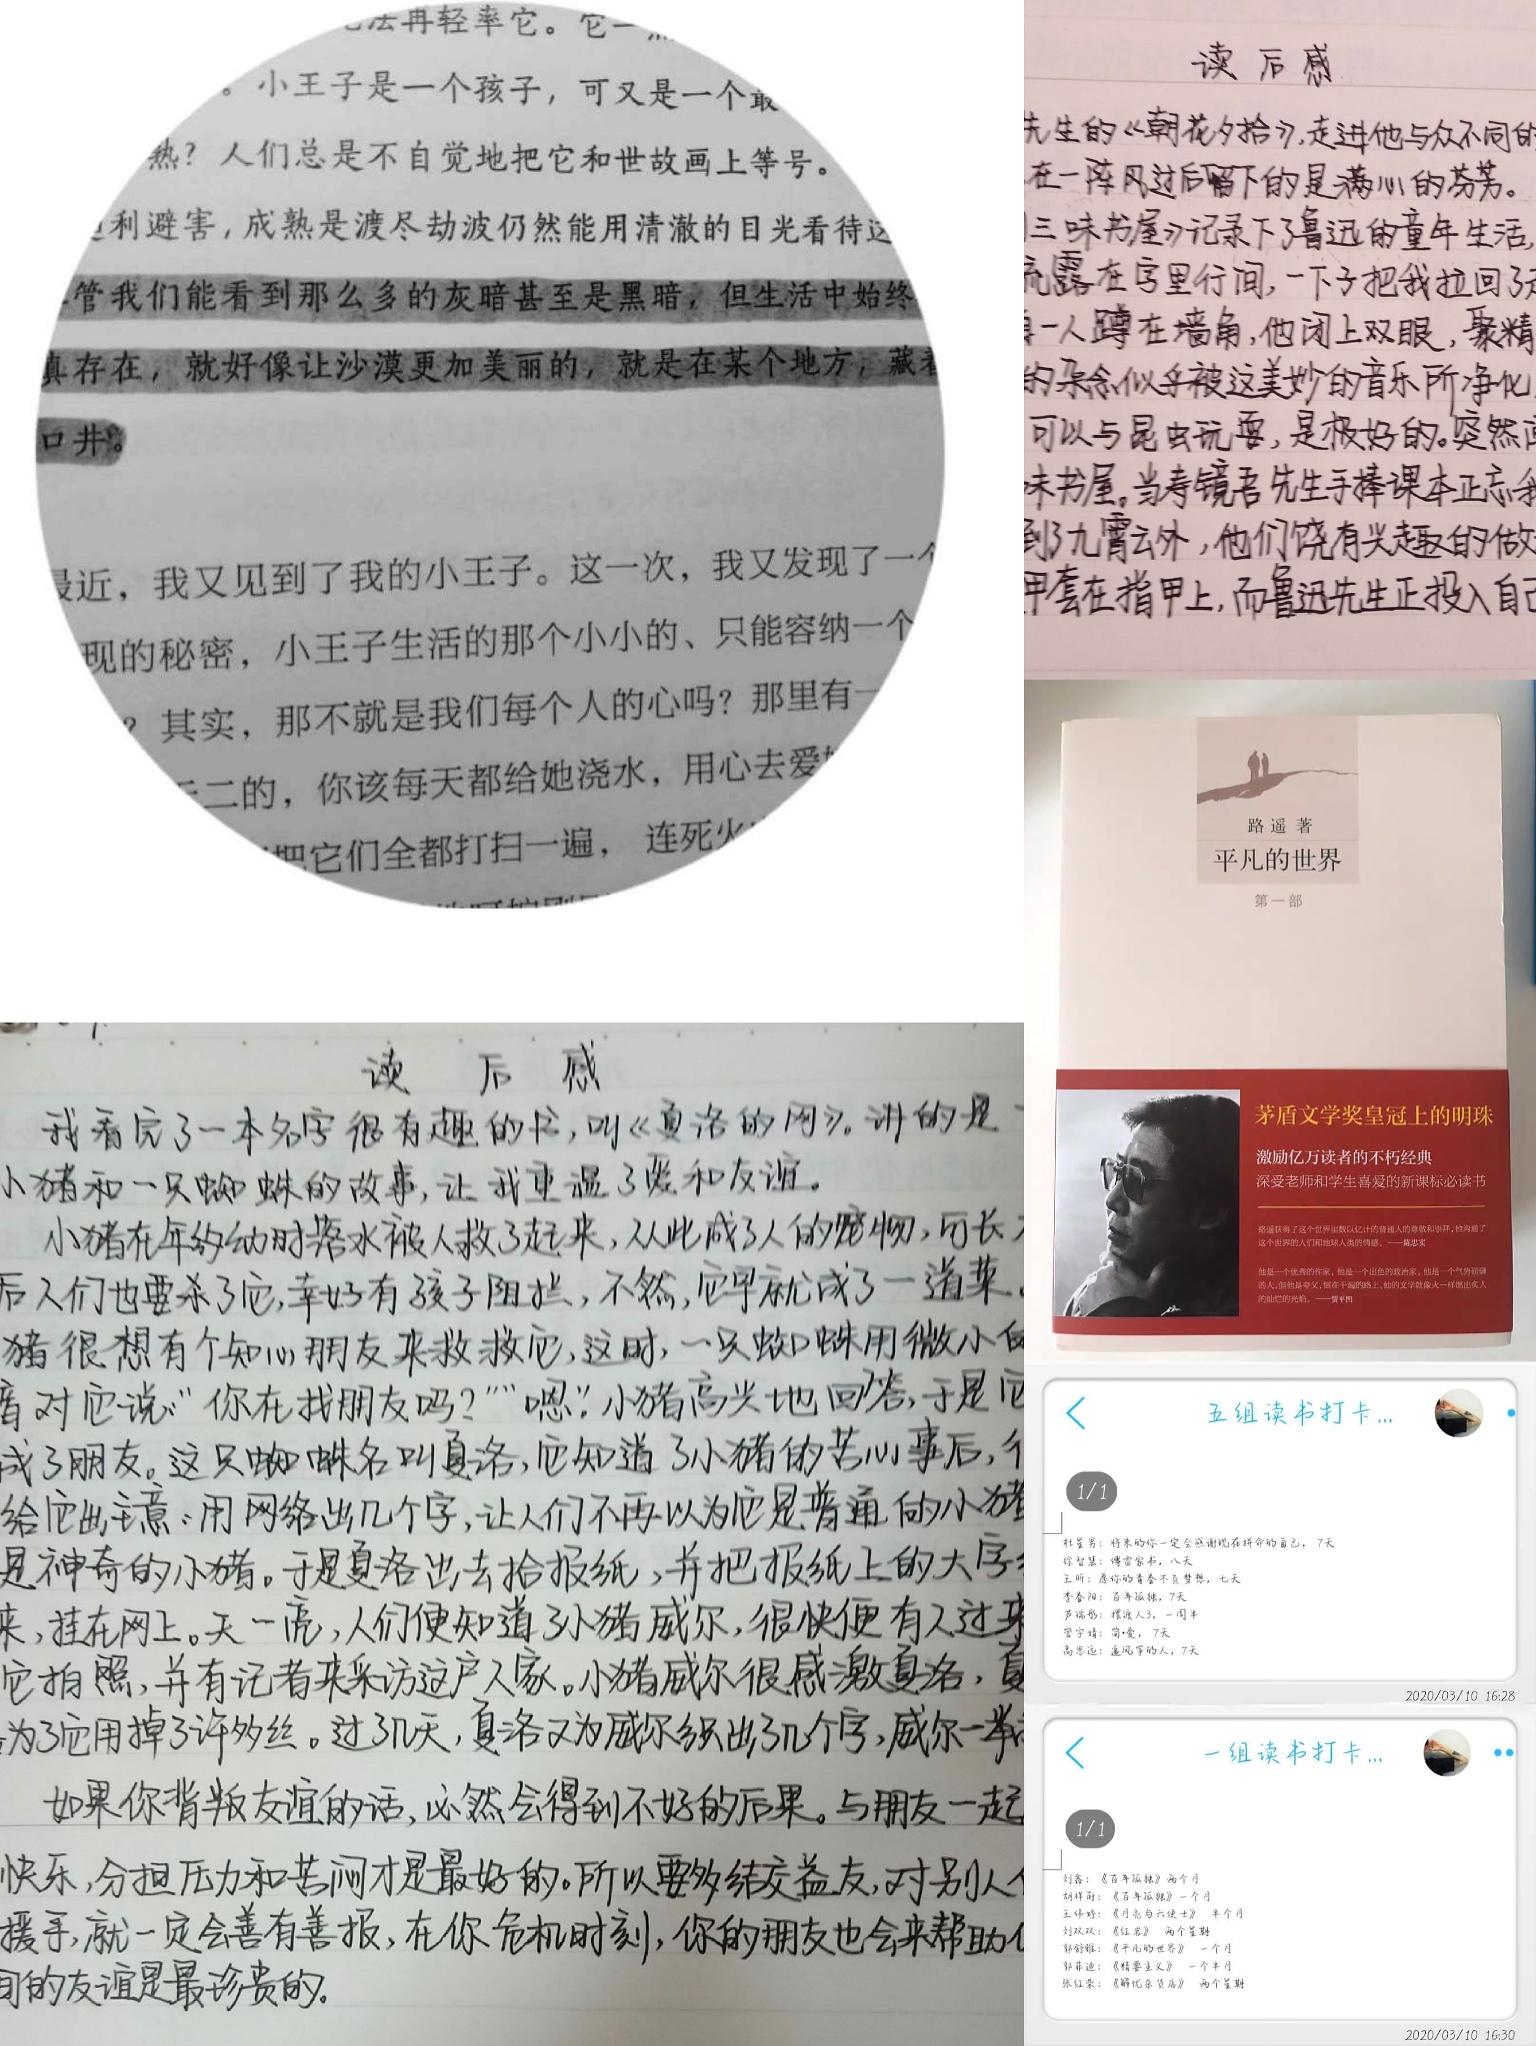 法再轻率它。它一点
。小王子是一个孩子，可又是一个最
熟？人们总是不自觉地把它和世故画上等号。
利避害，成熟是渡尽劫波仍然能用清澈的目光看待这
管我们能看到那么多的灰暗甚至是黑暗，但生活中始终
真存在，就好像让沙漠更加美丽的，就是在某个地方，藏着
口井。
最近，我又见到了我的小王子。这一次，我又发现了一个
现的秘密，小王子生活的那个小小的、只能容纳一个
？其实，那不就是我们每个人的心吗？那里有一
二的，你该每天都给她浇水，用心去爱
把它们全都打扫一遍，连死火
读后感
先生的《朝花夕拾》，走进他与众不同的
在一阵风过后留下的是满心的芬芳。
三味书屋》记录下了鲁迅的童年生活，
流露在字里行间，一下子把我拉回了
一人蹲在墙角，他闭上双眼，聚精
的杂念似乎被这美妙的音乐所净化
可以与昆虫玩耍，是极好的。突然间
味书屋。当寿镜吾先生手捧课本正忘我
到了九霄云外，他们饶有兴趣的做
甲套在指甲上，而鲁迅先生正投入自己
路遥著
平凡的世界
第一部
茅盾文学奖皇冠上的明珠
激励亿万读者的不朽经典
深受老师和学生喜爱的新课标必读书
路遥获得了这个世界里数以亿计的普通人的尊敬和崇拜，他沟通了
这个世界的人们和地球人类的情感。——陈忠实
他是一个优秀的作家，他是一个出色的政治家，他是一个气势磅礴
的人。但他是夸父，倒在干渴的路上。他的文学就像火一样燃出炙人
的灿烂的光焰。——贾平凹
读后感
我看完了一本名字很有趣的书，叫《夏洛的网》。讲的是
小猪和一只蜘蛛的故事，让我重温了爱和友谊。
小猪在年幼时落水被人救了起来，从此成了人的宠物，可长
后人们也要杀了它，幸好有孩子阻拦，不然，它早就成了一道菜。
猪很想有个知心朋友来救救它，这时，一只蜘蛛用微小的
音对它说：“你在找朋友吗？”“嗯”小猪高兴地回答，于是它
成了朋友。这只蜘蛛名叫夏洛，它知道了小猪的苦心事后，
给它出主意：用网络出几个字，让人们不再以为它是普通的小猪
是神奇的小猪。于是夏洛出去拾报纸，并把报纸上的大字
来，挂在网上。天一亮，人们便知道了小猪威尔，很快便有人过来
它拍照，并有记者来采访这户人家。小猪威尔很感激夏洛，夏
为了它用掉了许多丝。过了几天，夏洛又为威尔织出了几个字，威尔一举
如果你背叛友谊的话，必然会得到不好的后果。与朋友一起
快乐，分担压力和苦闷才是最好的。所以要多结交益友，对别人
援手，就一定会善有善报，在你危机时刻，你的朋友也会来帮助
间的友谊是最珍贵的。
五组读书打卡...
1/1
杜星男：将来的你一定会感谢现在拼命的自己，7天
徐智慧：傅雷家书，八天
王昕：愿你的青春不负梦想，七天
李春阳：百年孤独，7天
芦瑞彤：摆渡人3，一周半
管宇靖：简·爱，7天
高思远：追风筝的人，7天
2020/03/10 16:28
一组读书打卡...
1/1
刘鑫：《百年孤独》两个月
胡祥蔚：《百年孤独》一个月
王伟婷：《月亮与六便士》 半个月
刘双双：《红岩》 两个星期
郭舒雅：《平凡的世界》 一个月
郭菲迪：《精要主义》 一个半月
张红荣：《解忧杂货店》 两个星期
2020/03/10 16:30